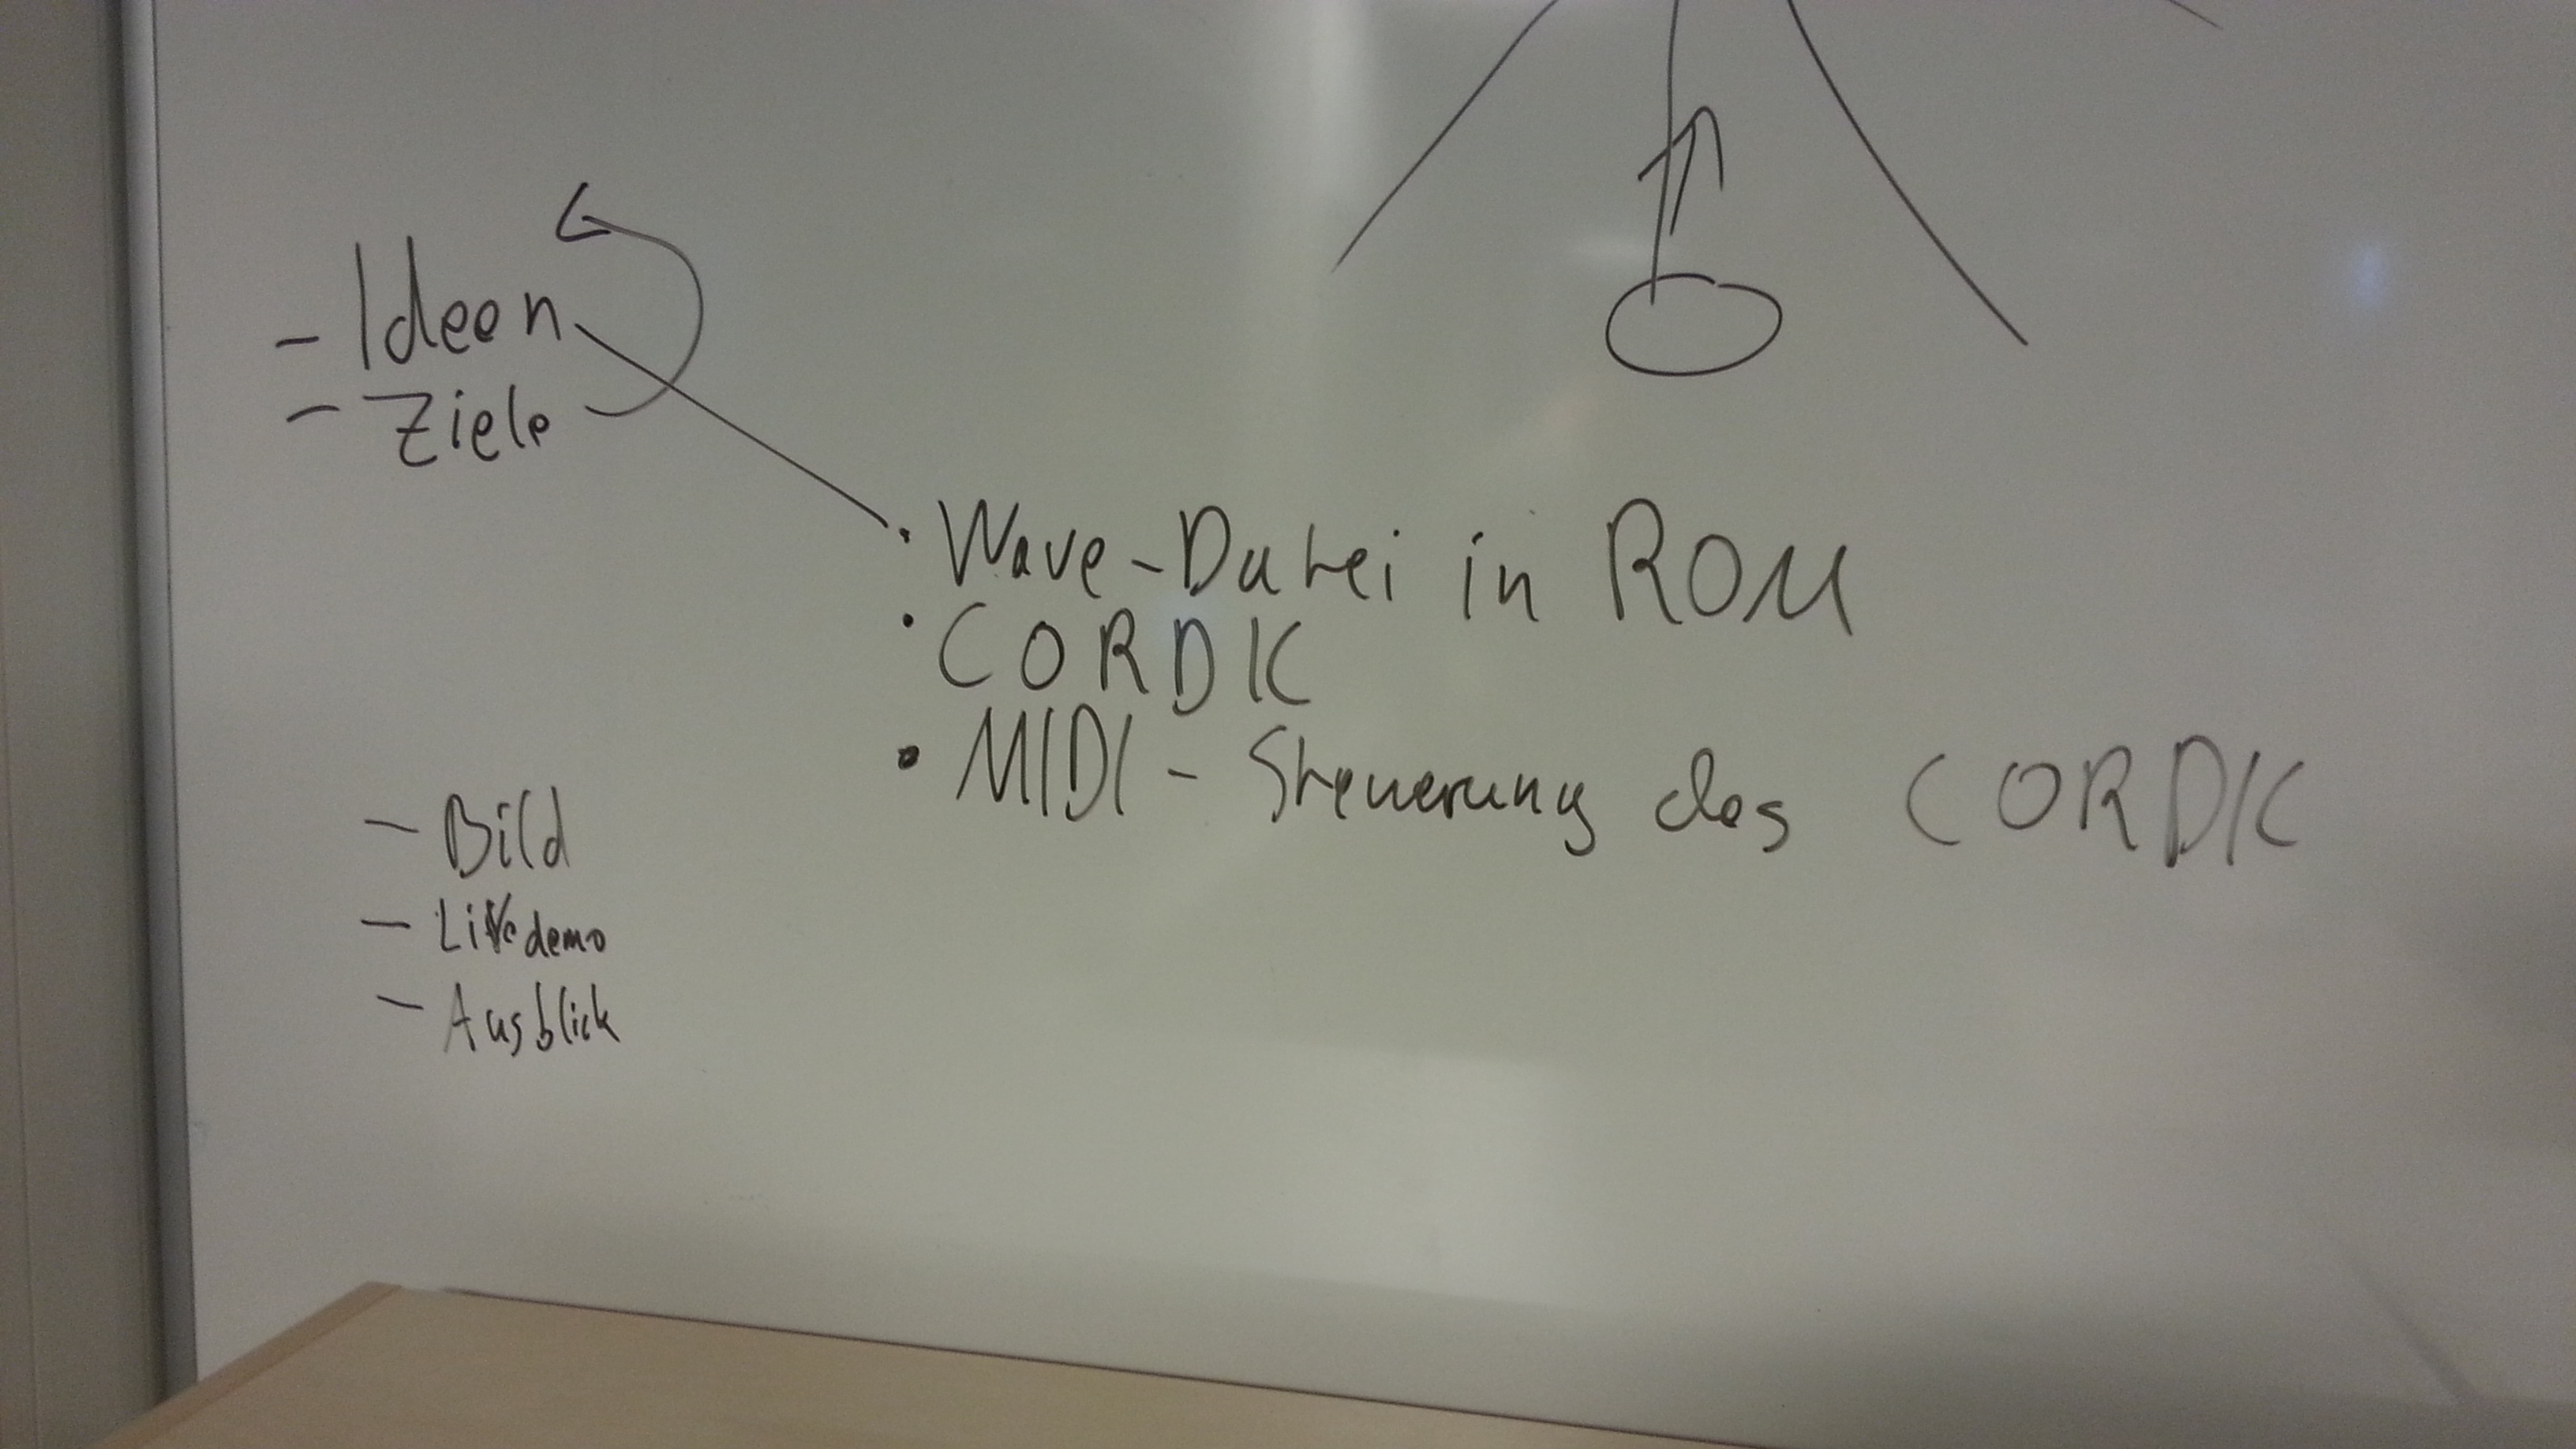 - Ideen
- Ziele
• Wave-Datei in ROM
• CORDIC
• MIDI - Steuerung des CORDIC
- Bild
- Livedemo
- Ausblick